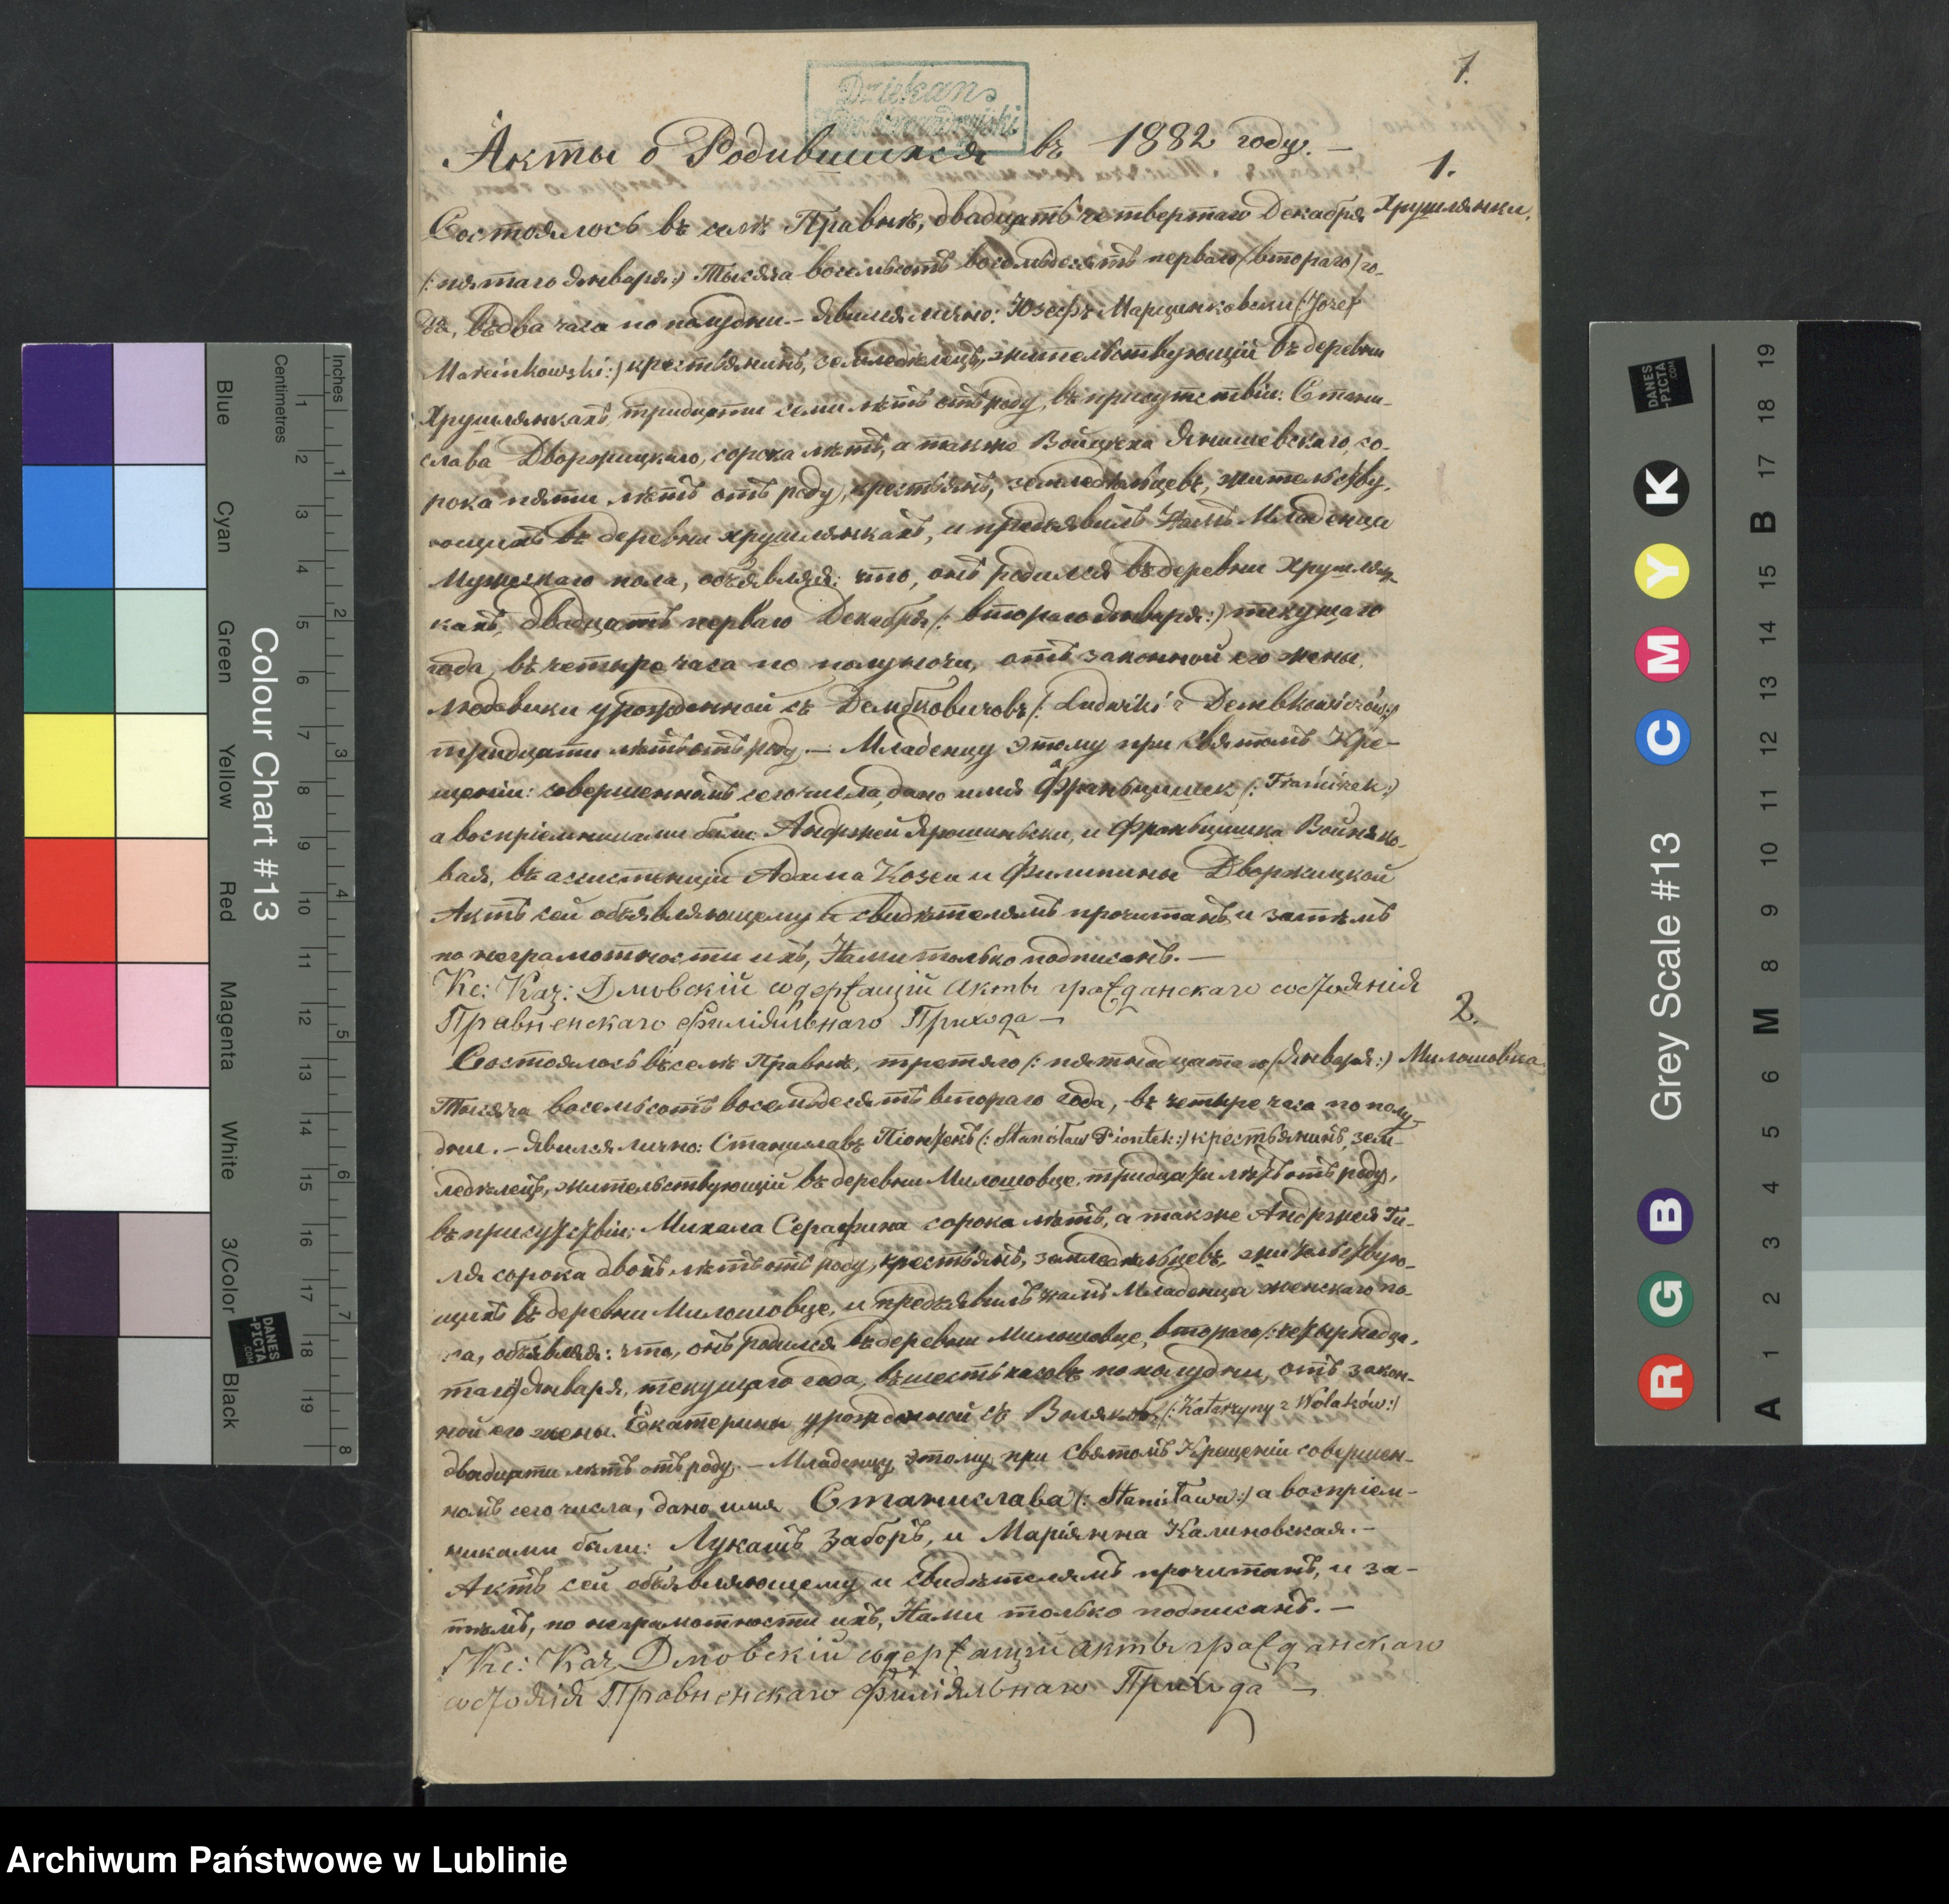 1.
Dziekan
Акты о Родившихся въ 1882 году. —
1.
Хрушлянки.
Состоялось въ селѣ Правнѣ, двадцать четвертаго Декабря
(: пятаго Января :) Тысяча восемьсотъ восемьдесятъ перваго (втораго) го-
да, въ два часа по полудни. — Явился лично: Юзефъ Марцинковски (: Jozef
Marcinkowski :) крестьянинъ, земледѣлецъ, жительствующій въ деревни
Хрушлянкахъ, тридцати семи лѣтъ отъ роду, въ присутствіи: Стани-
слава Дворжицкаго, сорока лѣтъ, а также Войцеха Янишевскаго, со-
рока пяти лѣтъ отъ роду, крестьянъ, земледѣльцевъ, жительству-
ющихъ въ деревни Хрушлянкахъ, и предъявилъ Намъ Младенца
Мужескаго пола, объявляя: что, онъ родился въ деревни Хрушлян-
кахъ, двадцать перваго Декабря (: втораго Января :) текущаго
года, въ четыре часа по полуночи, отъ законной его жены,
Людвики урожденной съ Дембковичовъ (: Ludwiki z Dembkowiczów :)
тридцати лѣтъ отъ роду. — Младенцу этому при Святомъ Кре-
щеніи: совершенномъ сего числа, дано имя Франьцишек (: Franciszek :)
а воспріемниками были Анджей Ярошиньски, и Франьцишка Войняко-
вая, въ асистенціи Адама Козеи и Филипины Дворжицкой
Актъ сей объявляющему и свидѣтелямъ прочитанъ, и затѣмъ
по неграмотности ихъ, Нами только подписанъ. —
Кс: Каз: Дмовскій содержащій Акты гражданскаго состоянія
Правненскаго Филіяльнаго Прихода —
2.
Милошовка
Состоялось въ селѣ Правнѣ, третяго (: пятнадцатаго (Января :)
Тысяча восемьсотъ восемьдесятъ втораго года, въ четыре часа по полу-
дни. — Явился лично: Станиславъ Піонтекъ (: Stanisław Piontek :) крестьянинъ, зем-
ледѣлецъ, жительствующій въ деревни Милошовце, тридцати лѣтъ отъ роду,
въ присутствіи: Михала Серафина сорока лѣтъ, а также Анджея Ги-
ля сорока двохъ, лѣтъ отъ роду, крестьянъ, земледѣльцевъ, жительствую-
щихъ въ деревни Милошовце, и предъявилъ намъ Младенца женскаго по-
ла, объявляя: что, онъ родился въ деревни Милошовце, втораго (: четырнадца-
таго) Января, текущаго года, въ шесть часовъ по полудни, отъ закон-
ной его жены. Екатерины урожденной съ Воляковъ (: Katarzyny z Wolaków :)
двадцати лѣтъ отъ роду. — Младенцу этому при Святомъ Крещеніи совершен-
номъ сего числа, дано имя Станислава (: Stanisława :) а воспріем-
никами были: Лукашъ Заборъ, и Маріянна Калиновская. —
Актъ сей объявляющему и свидѣтелямъ прочитанъ, и за-
тѣмъ, по неграмотности ихъ, Нами только подписанъ. —
Кс: Каз Дмовскій содержащій Акты гражданскаго
состоянія Правненскаго Филіяльнаго Прихода —
Inches
Centimetres
Colour Chart #13
Blue
Cyan
Green
Yellow
Red
Magenta
White
3/Color
Black
DANES
-PICTA
.COM
Grey Scale #13
R G B C M Y K
A 1 2 3 4 5 6 M 8 9 10 11 12 13 14 15 B 17 18 19
Archiwum Państwowe w Lublinie